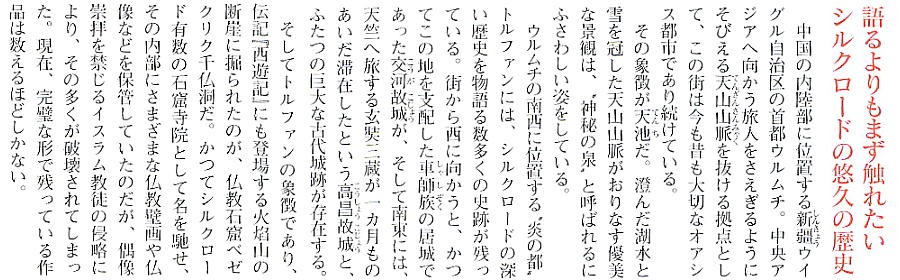 語るよりもまず触れたい
シルクロードの悠久の歴史
中国の内陸部に位置する新疆ウイ
グル自治区の首都ウルムチ。中央ア
ジアへ向かう旅人をさえぎるように
そびえる天山山脈を抜ける拠点とし
て、この街は今も昔も大切なオアシ
ス都市であり続けている。
その象徴が天池だ。澄んだ湖水と
雪を冠した天山山脈がおりなす優美
な景観は、〝神秘の泉〟と呼ばれるに
ふさわしい姿をしている。
ウルムチの南西に位置する〝炎の都〟
トルファンには、シルクロードの深
い歴史を物語る数多くの史跡が残っ
ている。街から西に向かうと、かつ
てこの地を支配した車師族の居城で
あった交河故城が、そして南東には、
天竺へ旅する玄奘三蔵が一カ月もの
あいだ滞在したという高昌故城と、
ふたつの巨大な古代城跡が存在する。
そしてトルファンの象徴であり、
伝記『西遊記』にも登場する火焰山の
断崖に掘られたのが、仏教石窟ベゼ
クリク千仏洞だ。かつてシルクロー
ド有数の石窟寺院として名を馳せ、
その内部にさまざまな仏教壁画や仏
像などを保管していたのだが、偶像
崇拝を禁じるイスラム教徒の侵略に
より、その多くが破壊されてしまっ
た。現在、完璧な形で残っている作
品は数えるほどしかない。